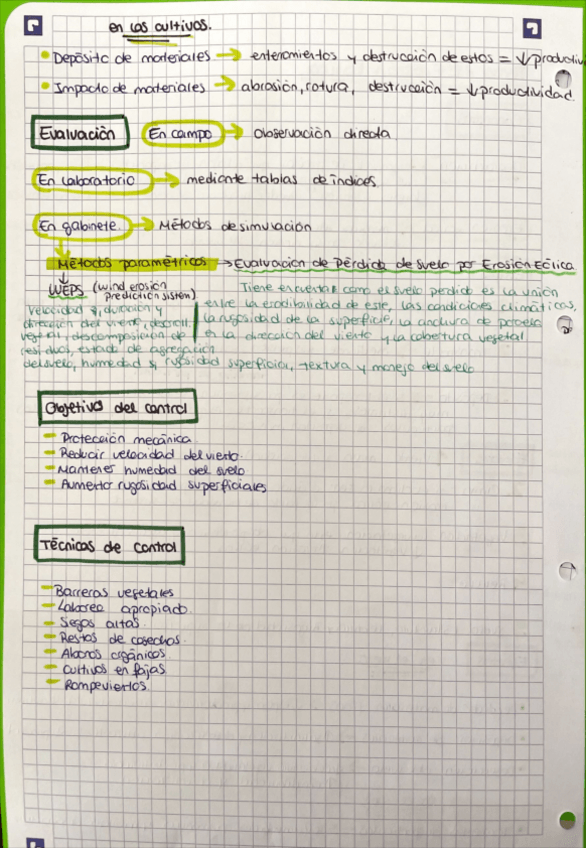 en los cultivos.
Depósito de materiales → enterramientos y destrucción de estos = ↓productiv
Impacto de materiales → abrasión, rotura, destrucción = ↓productividad.
Evaluación En campo → observación directa
En laboratorio → mediante tablas de índices
En gabinete. → Métodos de simulación
Métodos paramétricos → Evaluación de Pérdida de suelo por Erosión Eólica
WEPS (wind erosion prediction sistem)
Velocidad, duración y dirección del viento, vegetal, descomposición de residuos, estado de agregación del suelo, humedad y rugosidad superficial, textura y manejo del suelo
Tiene en cuenta como el suelo perdido es la unión
entre la erodibilidad de este, las condiciones climáticas,
la rugosidad de la superficie, la anchura de parcela
en la dirección del viento y la cobertura vegetal
Objetivo del control
Protección mecánica
Reducir velocidad del viento
Mantener humedad del suelo
Aumentar rugosidad superficiales
Técnicas de control
Barreras vegetales
Laboreo apropiado
Segas altas
Restos de cosechas
Abonos orgánicos
Cultivos en fajas
Rompevientos